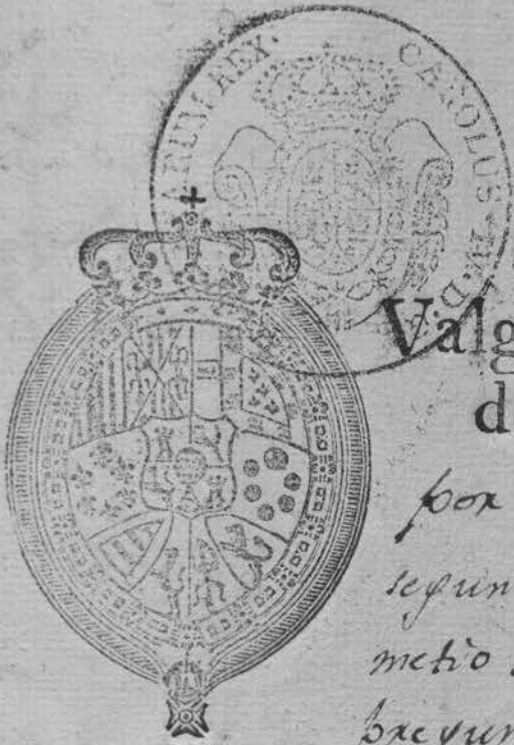 CAROLUS·IV·D·
ARUM REX·
Valg
d
por
segun
metio
pregun